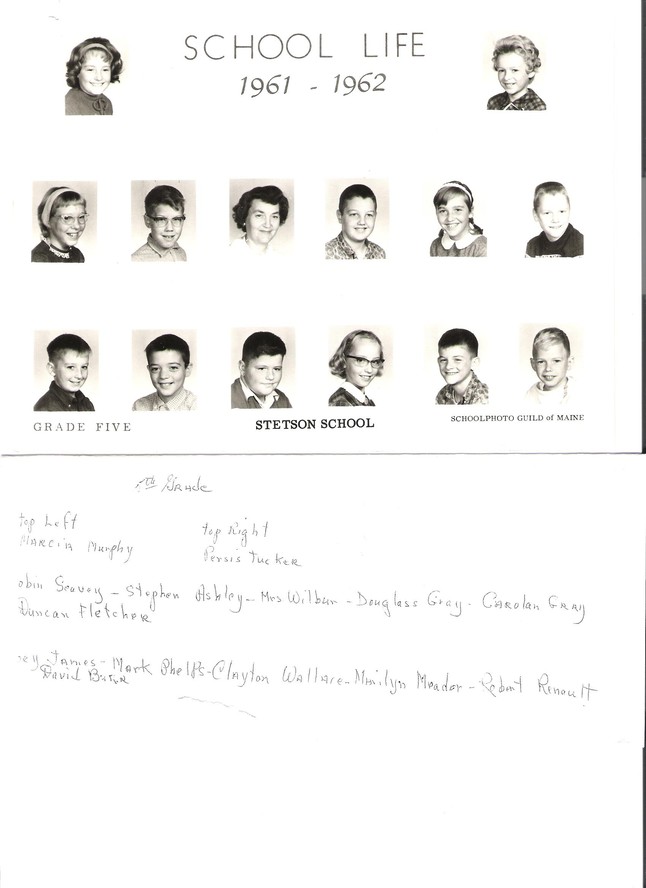 SCHOOL LIFE
1961 - 1962
GRADE FIVE
STETSON SCHOOL
SCHOOLPHOTO GUILD of MAINE
th Grade
top Left
top Right
Marcia Murphy
Persis Tucker
obin Seavey - Stephen Ashley - Mrs Wilbur - Douglass Gray - Carolan Gray
Duncan Fletcher
ey James - Mark Phelps - Clayton Wallace - Marilyn Meador - Robert Renoult
David